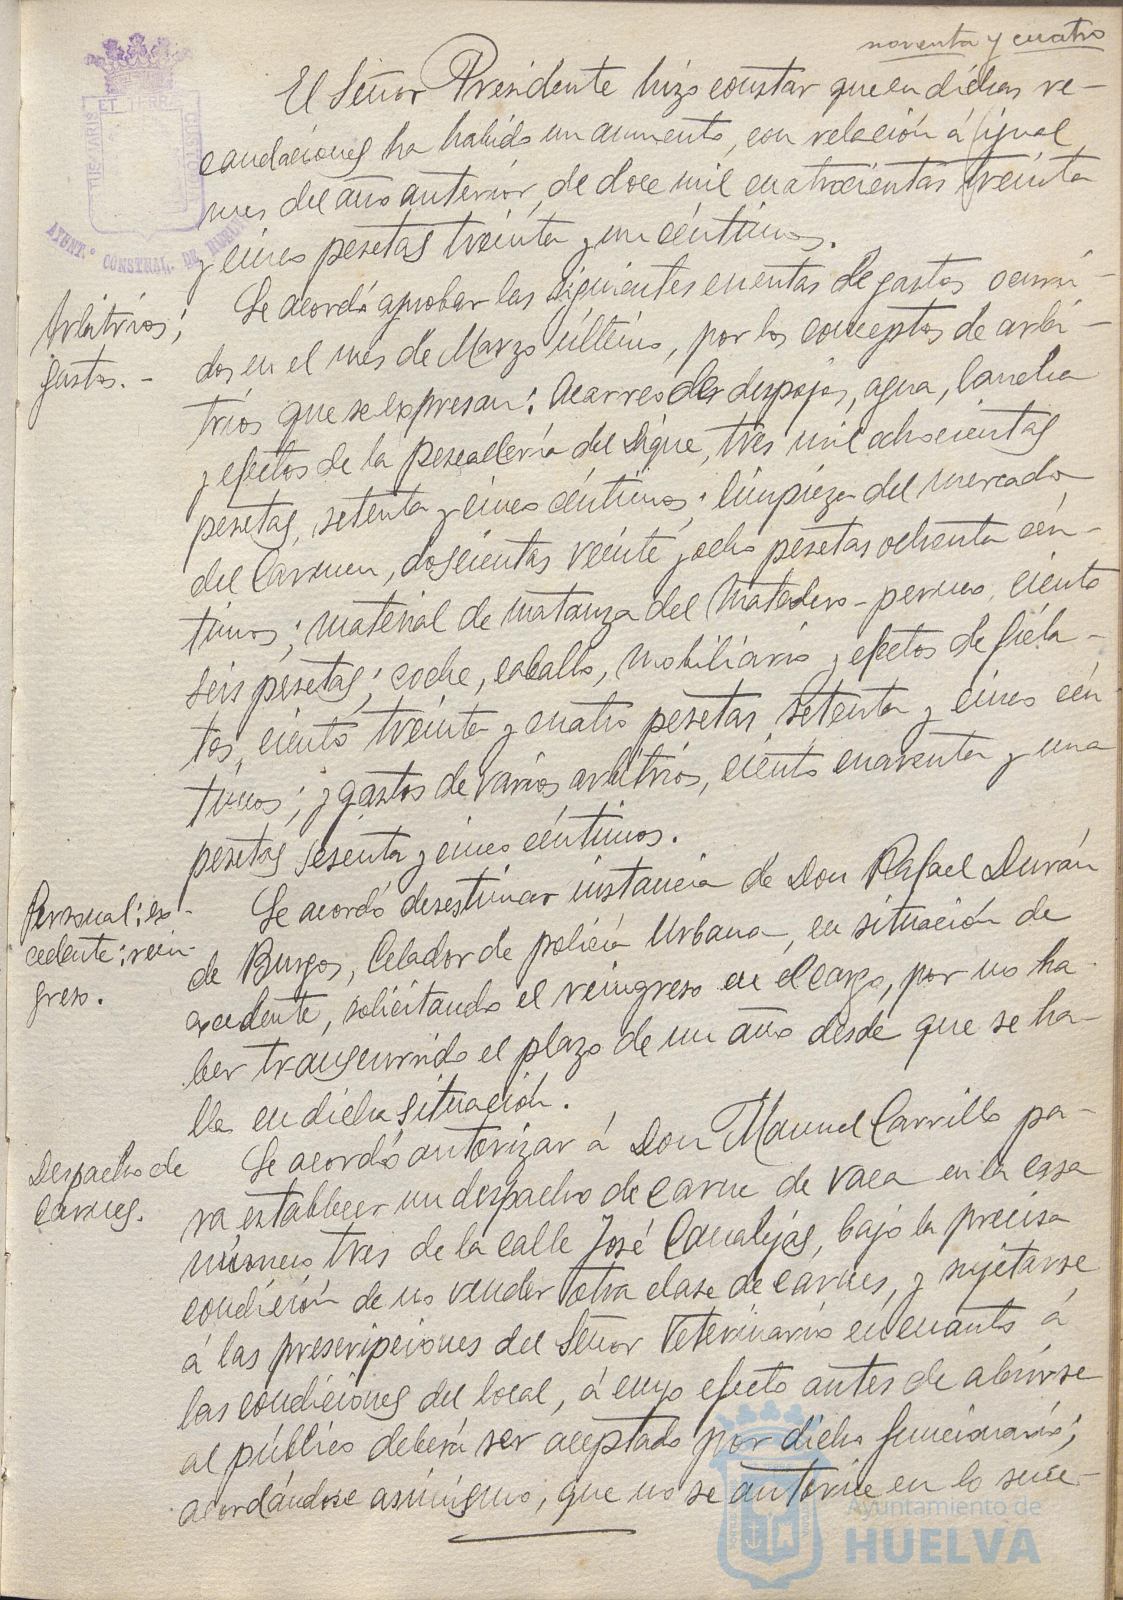 noventa y cuatro
El Señor Presidente hizo constar que en dichas re-
caudaciones ha habido un aumento, con relación á igual
mes del año anterior, de doce mil cuatrocientas treinta
y cinco pesetas treinta y un céntimos.
Arbitrios;
gastos.-
Se acordó aprobar las siguientes cuentas de gastos ocurri-
dos en el mes de Marzo último, por los conceptos de arbi-
trios que se expresan: Acarreo de despojos, agua, lancha
y efectos de la pescadería del Dique, tres mil ochocientas
pesetas, setenta y cinco céntimos; limpieza del mercado
del Carmen, doscientas veinte y ocho pesetas ochenta cén-
timos; material de matanza del Matadero-perneo, ciento
seis pesetas; coche, caballo, mobiliario y efectos de fiela-
tos, ciento treinta y cuatro pesetas setenta y cinco cén
timos; y gastos de varios arbitrios, ciento cuarenta y una
pesetas sesenta y cinco céntimos.
Personal: ex-
cedente: rein-
greso.
Se acordó desestimar instancia de Don Rafael Durán
de Burgos, Celador de policía Urbana, en situación de
excedente, solicitando el reingreso en el cargo, por no ha-
ber transcurrido el plazo de un año desde que se ha-
lla en dicha situación.
Despacho de
Carnes.
Se acordó autorizar á Don Manuel Carrillo pa-
ra establecer un despacho de carne de vaca en la casa
número tres de la calle José Canalejas, bajo la precisa
condición de no vender otra clase de carnes, y sujetarse
á las prescripciones del Señor Veterinario en cuanto á
las condiciones del local, á cuyo efecto antes de abrirse
al público deberá ser aceptado por dicho funcionario;
acordándose asímismo, que no se autorice en lo suce-
AYUNT.º CONSTNAL. DE HUELVA
Ayuntamiento de
HUELVA